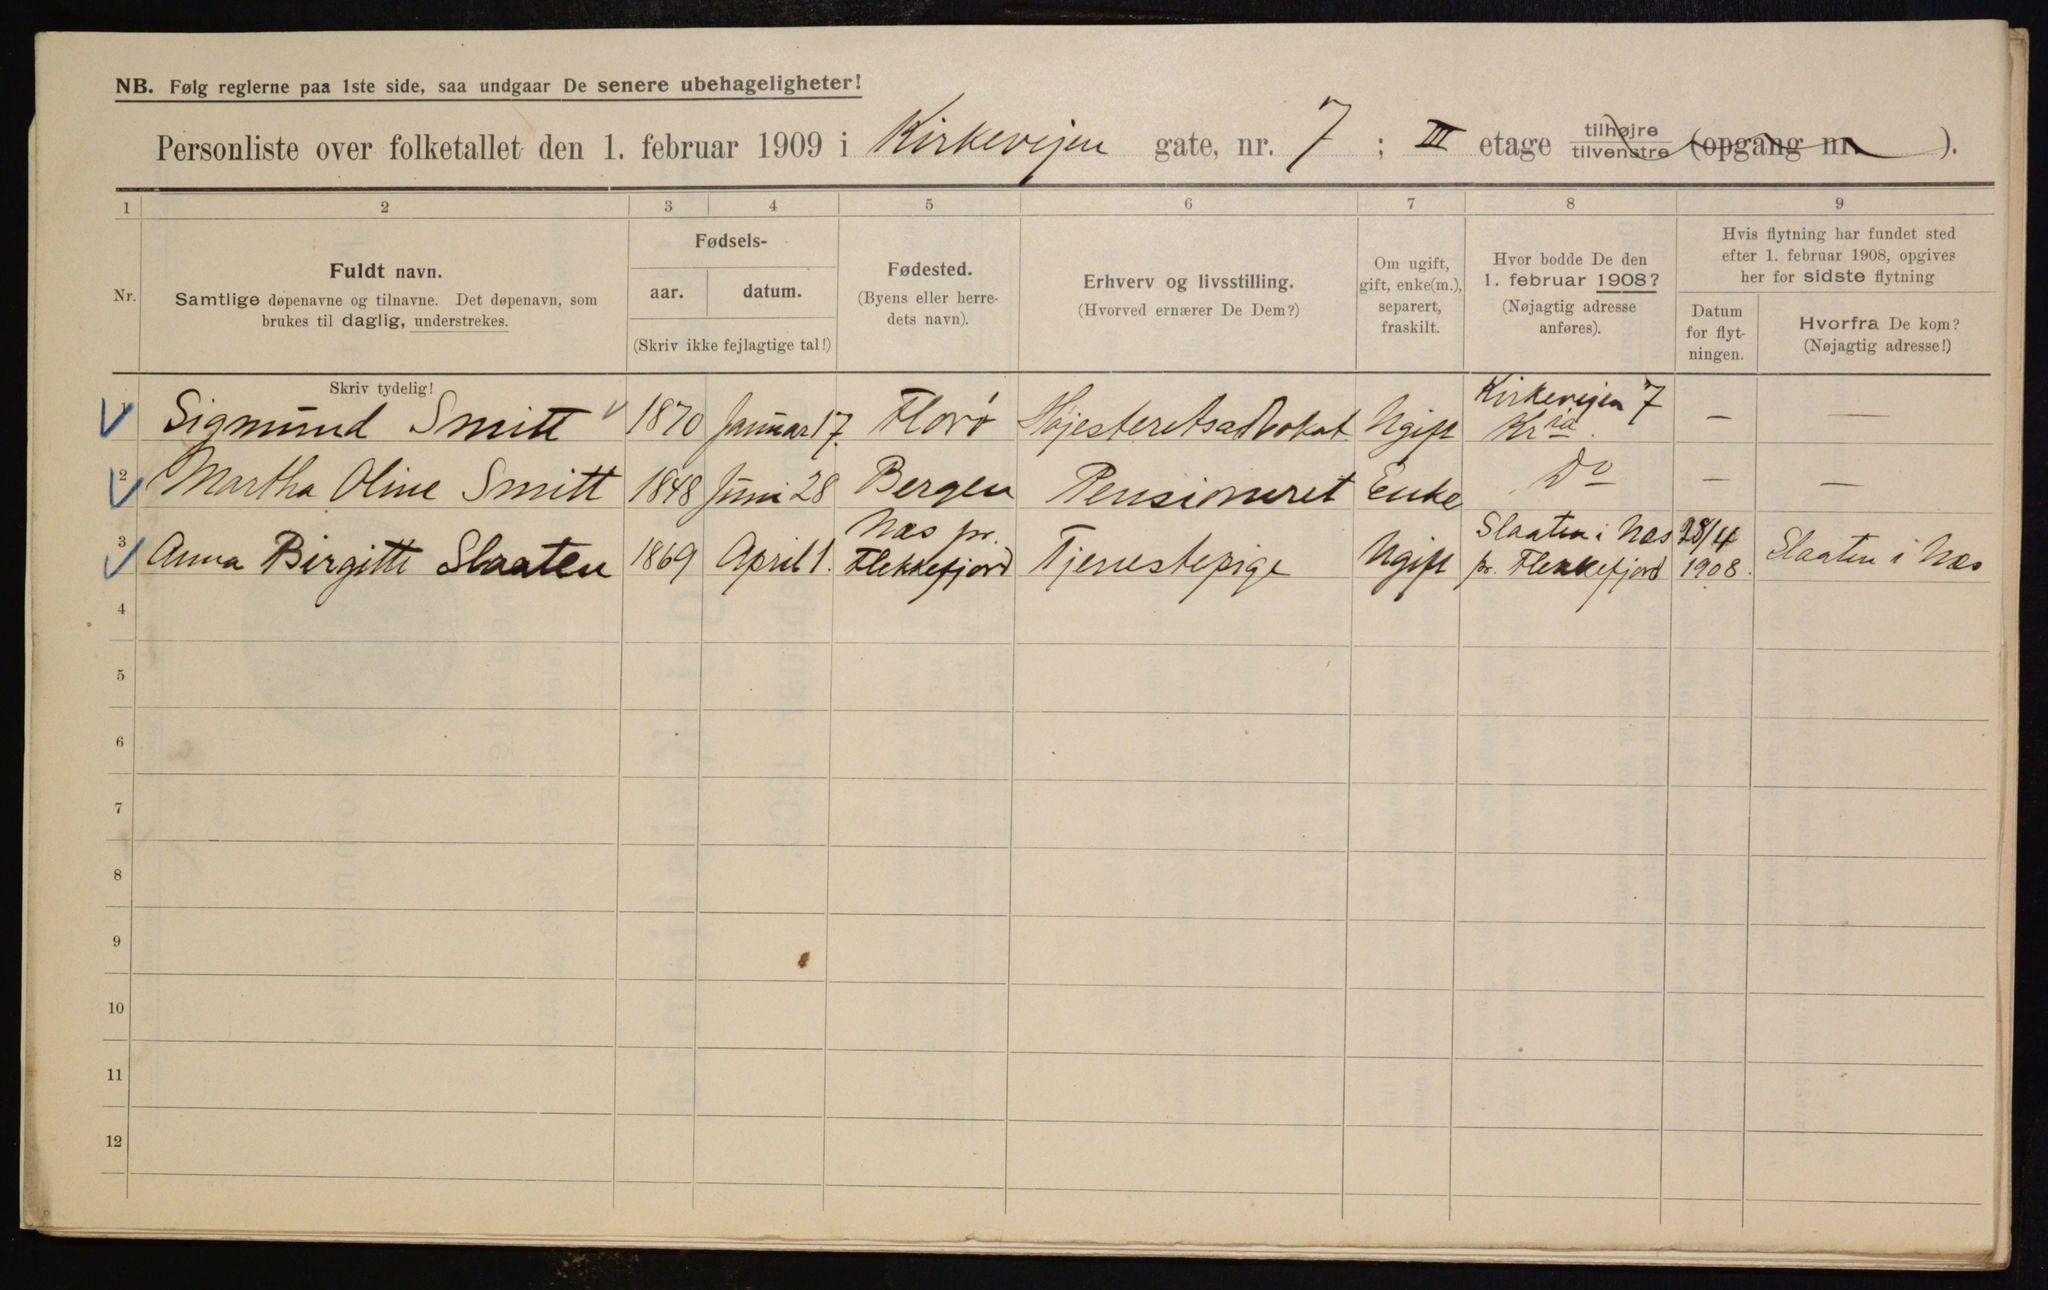 NB. Følg reglerne paa 1ste side, saa undgaar De senere ubehageligheter!
Personliste over folketallet den 1. februar 1909 i Kirkevejen gate, nr. 7 ; III etage tilhøjre tilvenstre (opgang nr. ).
1 2 3 4 5 6 7 8 9
Nr.
Fuldt navn.
Samtlige døpenavne og tilnavne. Det døpenavn, som
brukes til daglig, understrekes.
Skriv tydelig!
Fødsels-
aar. datum.
(Skriv ikke fejlagtige tal!)
Fødested.
(Byens eller herre-
dets navn).
Erhverv og livsstilling.
(Hvorved ernærer De Dem?)
Om ugift,
gift, enke(m.),
separert,
fraskilt.
Hvor bodde De den
1. februar 1908?
(Nøjagtig adresse
anføres).
Hvis flytning har fundet sted
efter 1. februar 1908, opgives
her for sidste flytning
Datum
for flyt-
ningen.
Hvorfra De kom?
(Nøjagtig adresse!)
1 Sigmund Smitt 1870 Januar 17. Florø Højesteretsadvokat Ugift Kirkevejen 7 Kr ia. — —
2 Martha Oline Smitt 1848 Juni 28 Bergen Pensioneret Enke Do — —
3 Anna Birgitte Slaaten 1869 April 1. Næs pr. Flekkefjord Tjenestepige Ugift Slaaten i Næs pr. Flekkefjord 28/4 1908. Slaaten i Næs
4
5
6
7
8
9
10
11
12